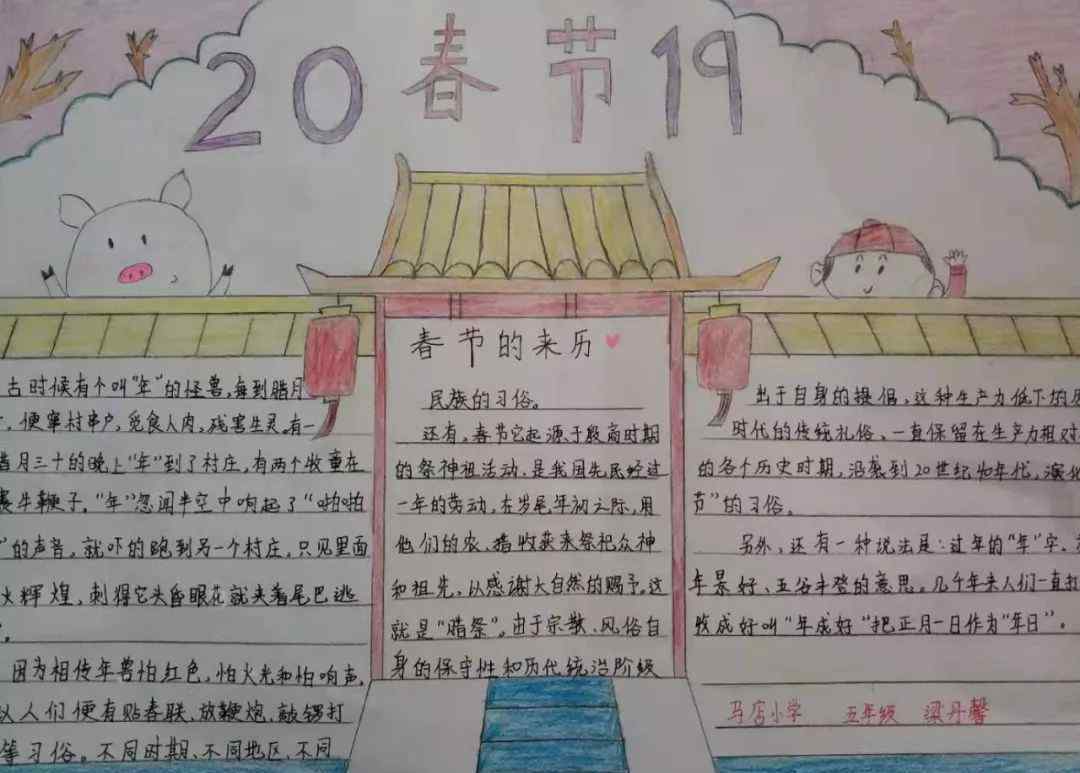 20春节19
古时候有个叫"年"的怪兽,每到腊月
,便窜村串户,觅食人肉,残害生灵。有一
腊月三十的晚上"年"到了村庄,有两个牧童在
赛牛鞭子。"年"忽闻半空中响起了"啪啪
"的声音。就吓的跑到另一个村庄,只见里面
火辉煌,刺得它头昏眼花就夹着尾巴逃
。
因为相传年兽怕红色,怕火光和怕响声,
以人们便有贴春联、放鞭炮、敲锣打
等习俗。不同时期、不同地区、不同
春节的来历
民族的习俗。
还有,春节它起源于殷商时期
的祭神祖活动,是我国先民经过
一年的劳动,在岁尾年初之际,用
他们的农、猎收获来祭祀众神
和祖先,以感谢大自然的赐予。这
就是"腊祭"。由于宗教、风俗自
身的保守性和历代统治阶级
出于自身的提倡,这种生产力低下的
时代的传统礼俗、一直保留在生产力相对
的各个历史时期,沿袭到20世纪40年代,演化
节"的习俗。
另外,还有一种说法是:过年的"年"字,
年景好、五谷丰登的意思。几千年来人们一直
收成好叫"年成好"把正月一日作为"年日"。
马店小学 五年级 梁丹馨